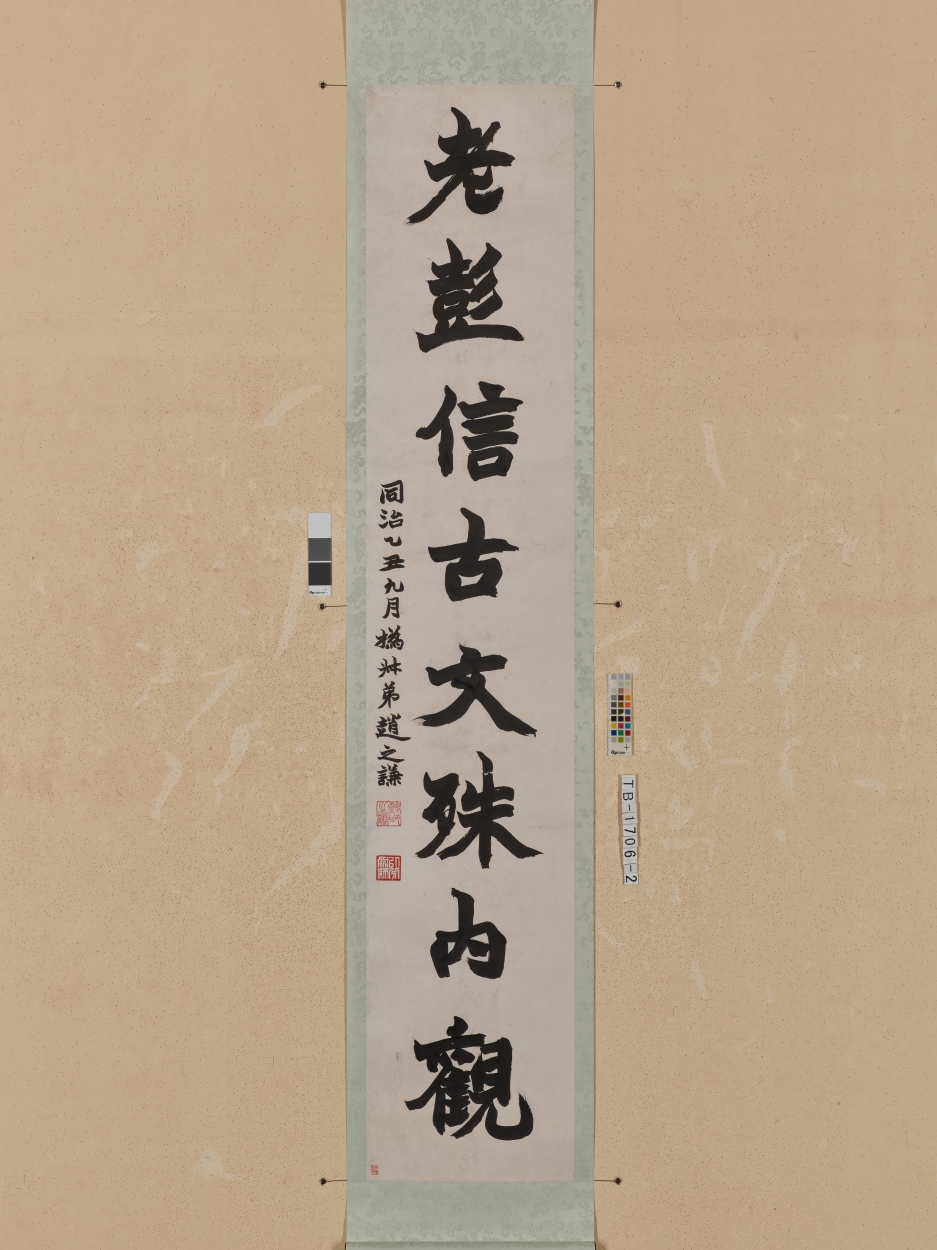 老彭信古文殊内觀
同治乙丑九月撝尗弟趙之謙
TB-1706-2